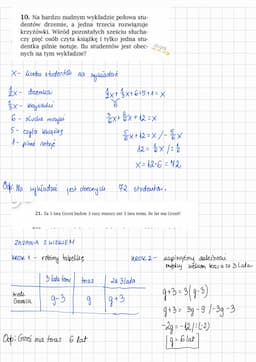 10. Na bardzo nudnym wykładzie połowa stu-
dentów drzemie, a jedna trzecia rozwiązuje
krzyżówki. Wśród pozostałych sześciu słucha-
czy pięć osób czyta książkę i tylko jedna stu-
dentka pilnie notuje. Ilu studentów jest obec-
nych na tym wykładzie?
x - liczba studentów na wykładzie
1/2x - drzemka
1/3x - krzyżówki
6 - słucha muzyki
5 - czyta książkę
1 - pilnie notuje
1/2x + 1/3x + 6+5+1 = x
3/6x + 2/6x + 12 = x
5/6x + 12 = x /- 5/6x
12 = 1/6x /: 1/6
x = 12·6 = 72
Odp: Na wykładzie jest obecnych 72 studentów.
21. Za 3 lata Grześ będzie 3 razy starszy niż 3 lata temu. Ile lat ma Grześ?
ZADANIA Z WIEKIEM
KROK 1 - robimy tabelkę
3 lata temu
teraz
za 3 lata
wiek
Grzesia
g-3
g
g+3
KROK 2 - zapisujemy zależności
między wiekiem teraz a za 3 lata
g+3 = 3(g-3)
g+3 = 3g-9 /-3g -3
-2g = -12 /:(-2)
g = 6 lat
Odp: Grześ ma teraz 6 lat